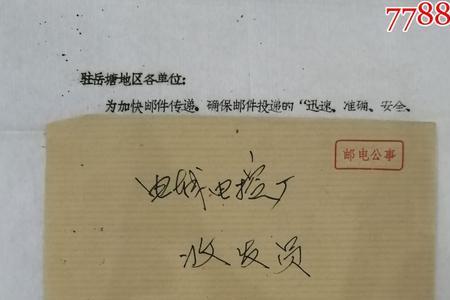 7788
驻岳塘地区各单位:
为加快邮件传递。确保邮件投递的“迅速、准确、安全、
邮电公事
电线电控厂
收发员